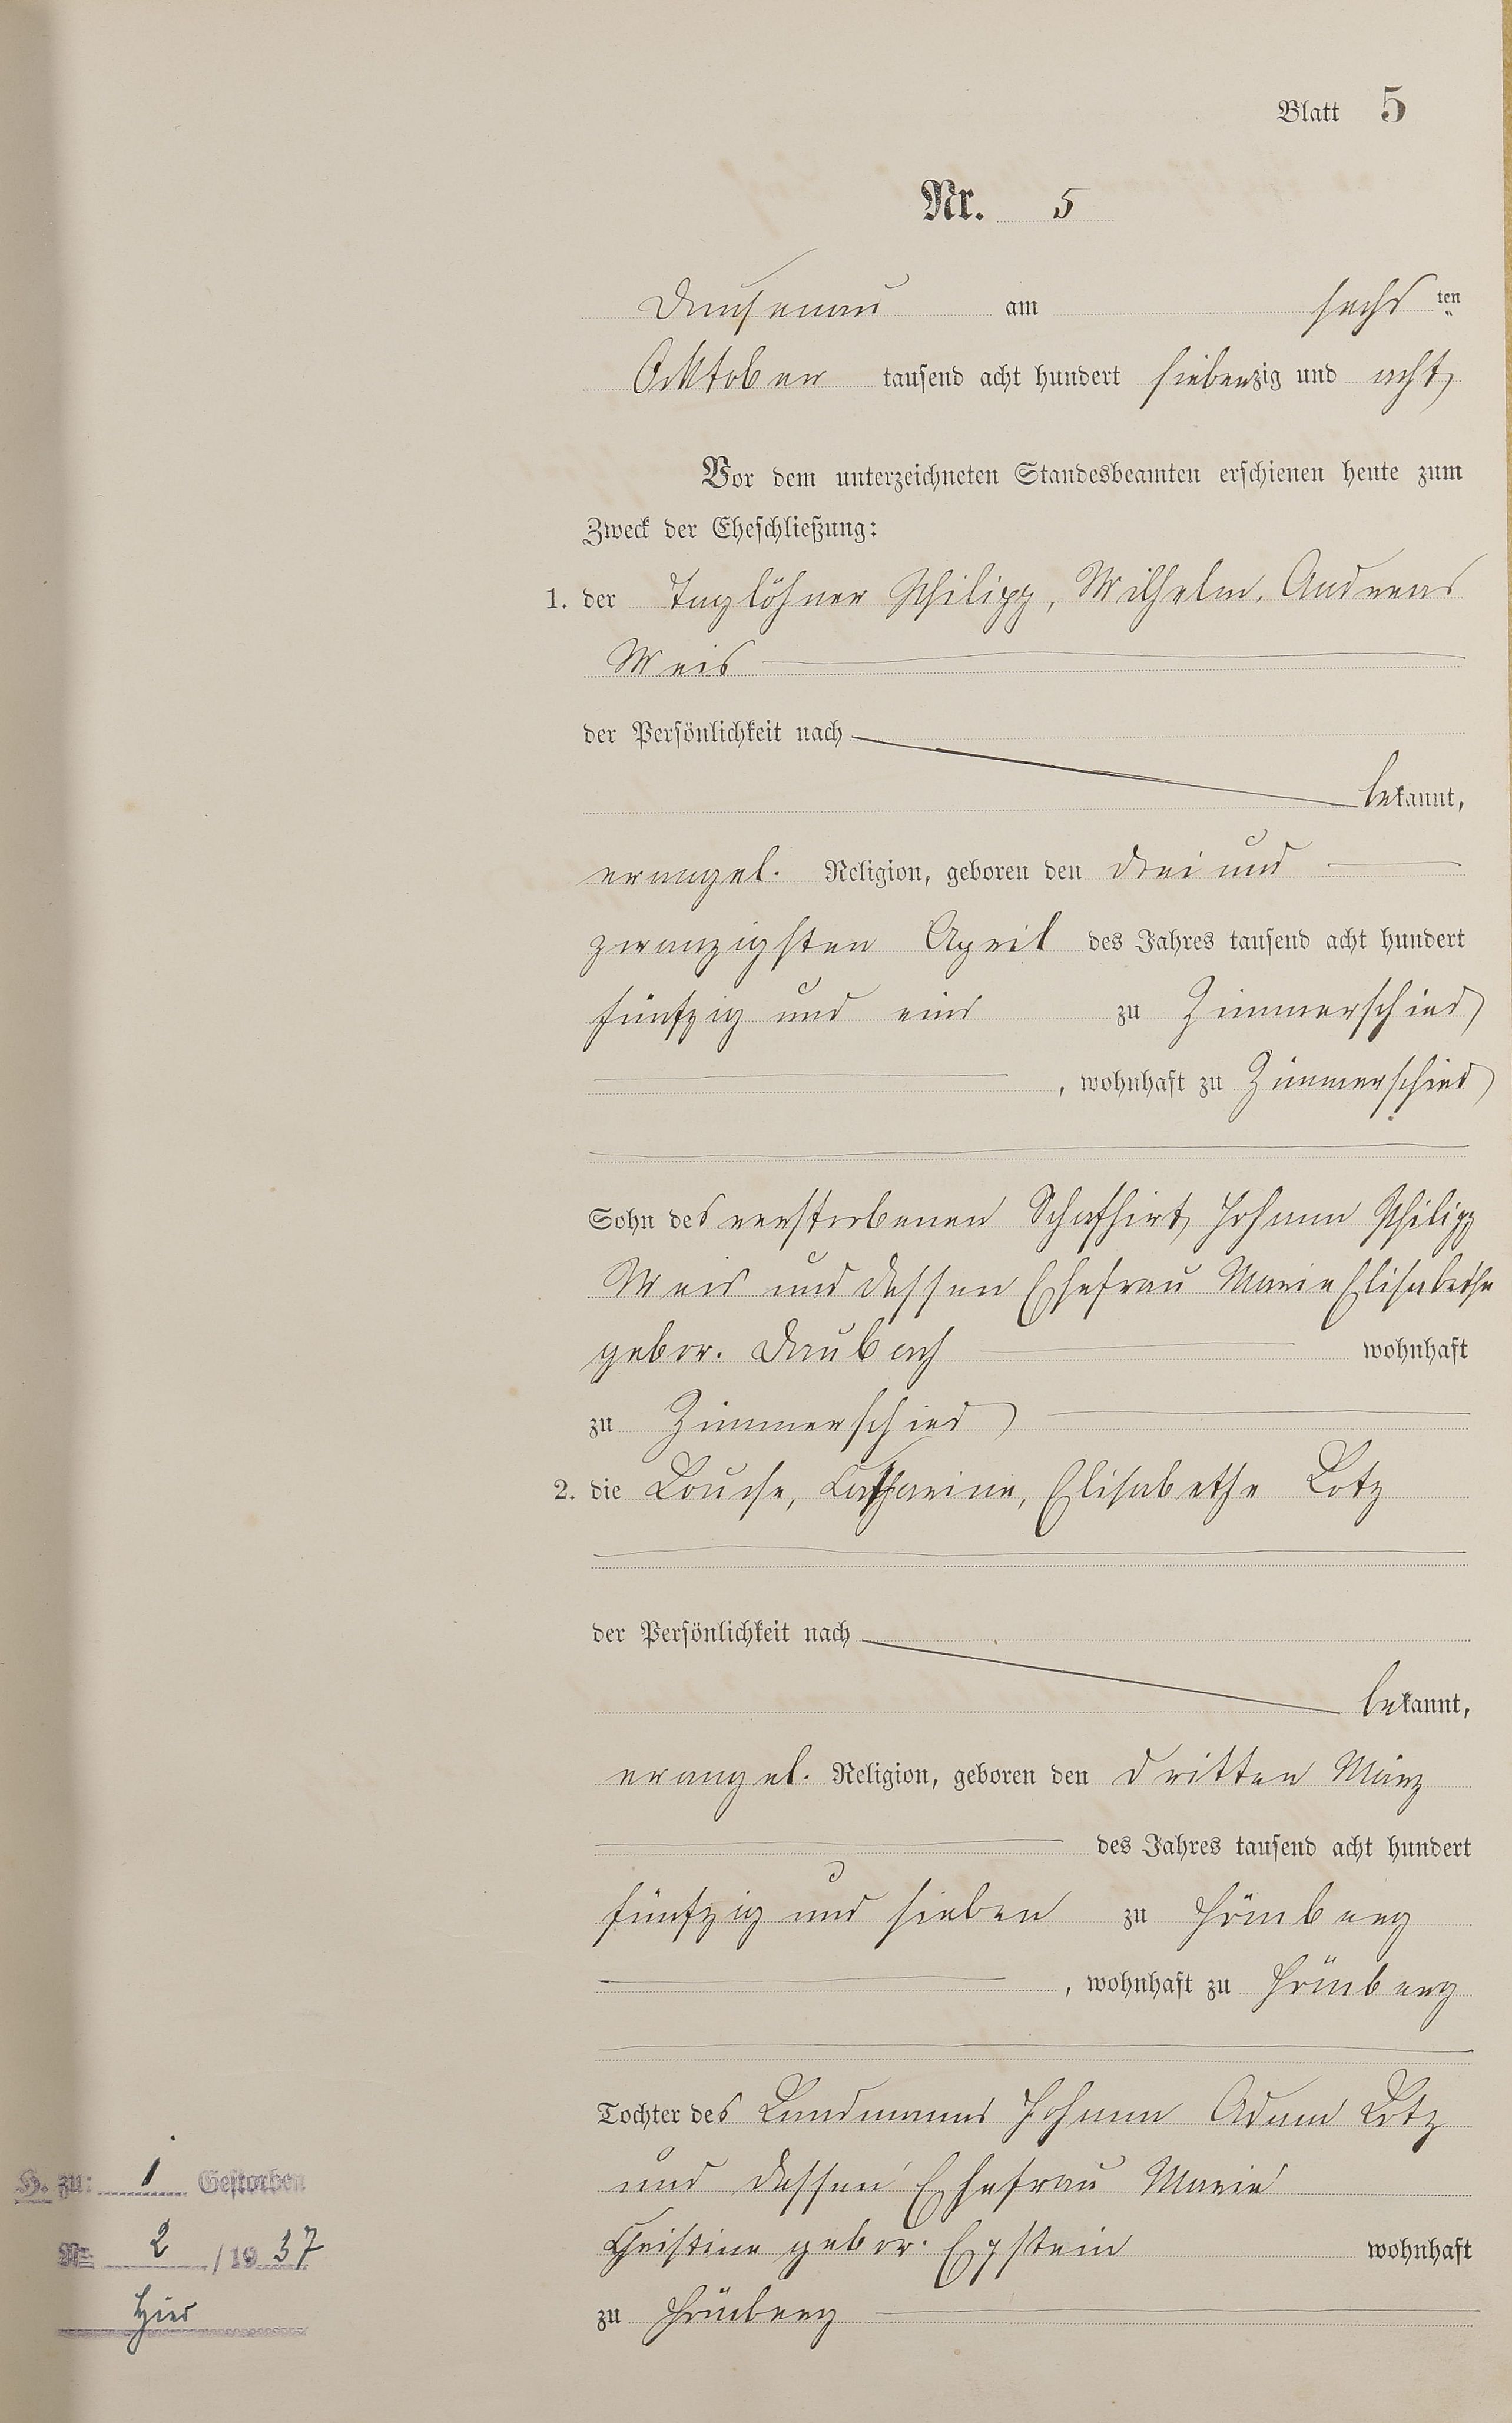 Blatt 5
Nr. 5
Dausenau am sechsten
Oktober tausend acht hundert siebenzig und acht
Vor dem unterzeichneten Standesbeamten erschienen heute zum
Zweck der Eheschließung:
1. der Taglöhner Philipp, Wilhelm, Andreas
Weis
der Persönlichkeit nach
bekannt,
evangel. Religion, geboren den drei und
zwanzigsten April des Jahres tausend acht hundert
fünfzig und eins zu Zimmerschied
, wohnhaft zu Zimmerschied
Sohn des verstorbenen Schafhirt Johann Philipp
Weis und dessen Ehefrau Marie Elisabethe
gebor. Daubach wohnhaft
zu Zimmerschied
2. die Louise, Catharine, Elisabethe Lotz
der Persönlichkeit nach
bekannt,
evangel. Religion, geboren den dritten März
des Jahres tausend acht hundert
fünfzig und sieben zu Hömberg
, wohnhaft zu Hömberg
Tochter des Landmanns Johann Adam Lotz
und dessen Ehefrau Marie
Christine gebor. Epstein wohnhaft
zu Hömberg
H. zu: 1 Gestorben
Nr. 2 / 19 37
hier